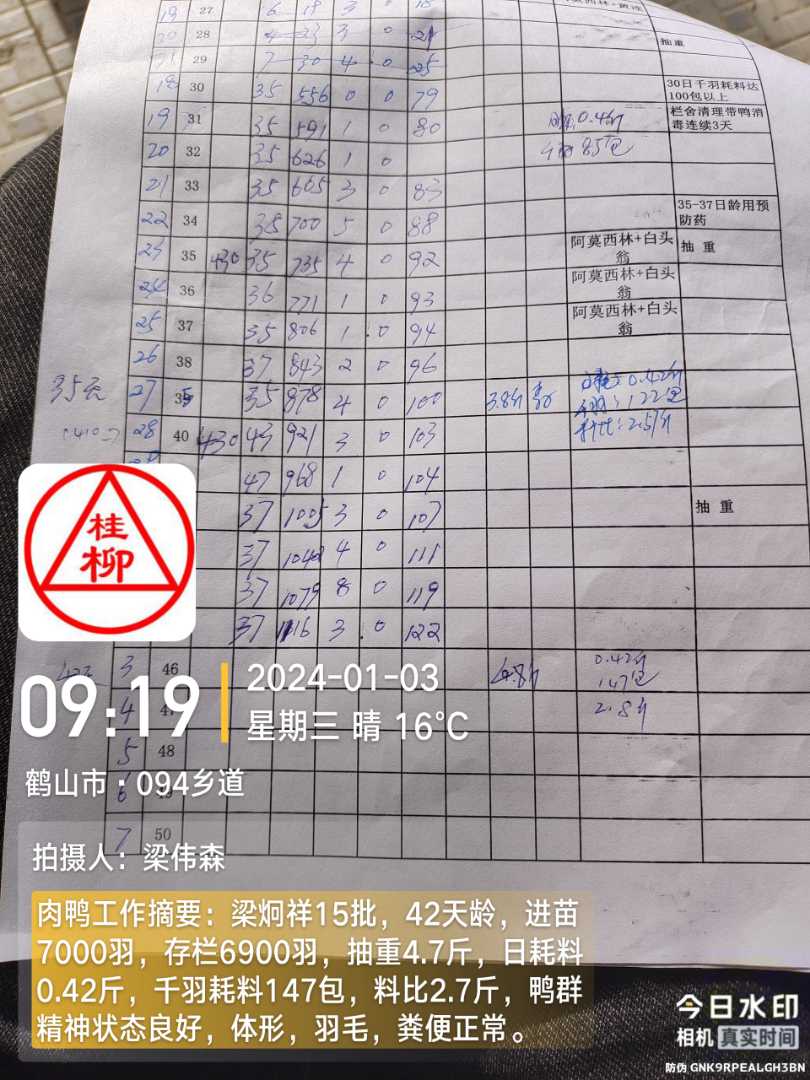 19 27 6 19 3 0 18
20 28 4 33 3 0 21 抽重
29 7 30 4 0 25
18 30 35 556 0 0 79 30日千羽耗料达100包以上
19 31 35 591 1 0 80 0.4斤 栏舍清理带鸭消毒连续3天
20 32 35 626 1 0 85包
21 33 35 665 3 0 83
22 34 35 700 5 0 88 35-37日龄用预防药
23 35 430 35 735 4 0 92 阿莫西林+白头翁 抽 重
24 36 36 771 1 0 93 阿莫西林+白头翁
25 37 35 806 1 0 94 阿莫西林+白头翁
26 38 37 843 2 0 96
35天 27 39 35 878 4 0 100 3.8斤 0.42斤
28 40 430 43 921 3 0 103 122包
料比:2.5斤
47 968 1 0 104
37 1005 3 0 107 抽 重
37 1042 4 0 111
37 1079 8 0 119
37 1116 3 0 122
42天 3 46 4.8斤 0.42斤
147包
4 47 2.8斤
5 48
6 49
7 50
桂
柳
09:19
2024-01-03
星期三 晴 16℃
鹤山市·094乡道
拍摄人：梁伟森
肉鸭工作摘要：梁炯祥15批，42天龄，进苗
7000羽，存栏6900羽，抽重4.7斤，日耗料
0.42斤，千羽耗料147包，料比2.7斤，鸭群
精神状态良好，体形，羽毛，粪便正常。
今日水印
相机 真实时间
防伪 GNK9RPEALGH3BN